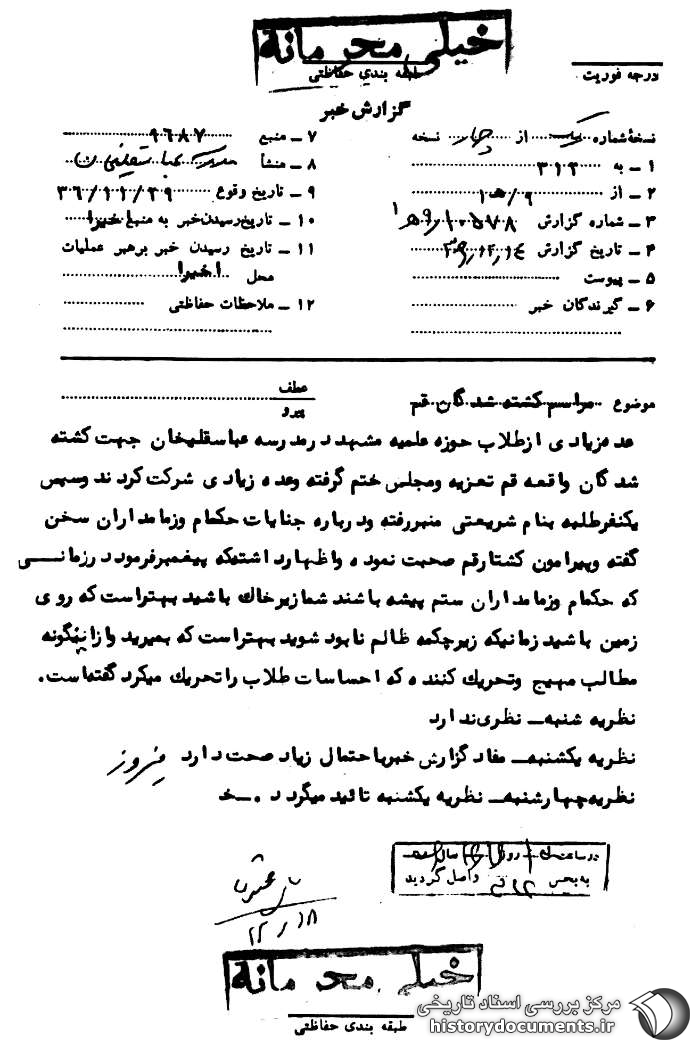 خیلی محرمانه
طبقه بندی حفاظتی
درجه فوریت
گزارش خبر
نسخهٔ شماره یک از چهار نسخه
۱ – به ۳۱۲
۲ – از ۹/ه‍ ۱
۳ – شماره گزارش
۴ – تاریخ گزارش
۵ – پیوست
۶ – گیرندگان خبر
۷ – منبع ۹۶۸۷
۸ – منشأ
۹ – تاریخ وقوع ۳۶/۱۱/۲۹
۱۰ – تاریخ رسیدن خبر به منبع اخیرا
۱۱ – تاریخ رسیدن خبر برهبر عملیات
محل اخیرا
۱۲ – ملاحظات حفاظتی
موضوع مراسم کشته شدگان قم
عطف
پیرو
عده زیادی از طلاب حوزه علمیه مشهد در مدرسه عباسقلیخان جهت کشته
شدگان واقعه قم تعزیه و مجلس ختم گرفته وعده زیادی شرکت کردند وسپس
یکنفر طلبه بنام شریعتی منبر رفته ودرباره جنایات حکمام وزمامداران سخن
گفته وپیرامون کشتار قم صحبت نموده واظهار داشتیکه پیغمبر فرمود درزمانی
که حکمام وزمامداران ستم پیشه باشند شما زیر خاک باشید بهتراست که روی
زمین باشید زمانیکه زیر چکمه ظالم نابود شوید بهتراست که بمیرید وازاینگونه
مطالب مهیج وتحریک کننده که احساسات طلاب را تحریک میکرد گفته است.
نظریه شنبه– نظری ندارد
نظریه یکشنبه– مفاد گزارش خبر باحتمال زیاد صحت دارد
نظریه چهارشنبه– نظریه یکشنبه تائید میگردد. –خ
در ساعت روز سال
به بخش ۳۱۲ واصل گردید
۱۲/۱۸
خیلی محرمانه
طبقه بندی حفاظتی
مرکز بررسی اسناد تاریخی
historydocuments.ir